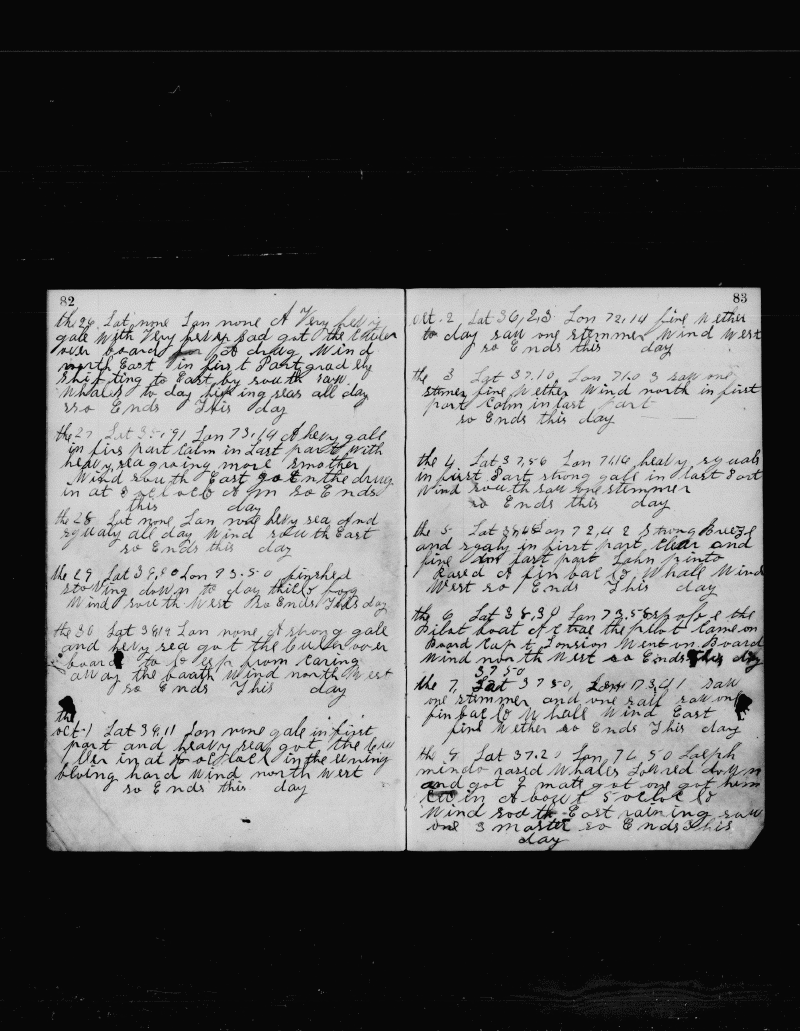 82
the 26 Lat none Lon none A Very hevy
gale with Very hevy sad got the
over board A drug Wind
north East in first Part gradely
shifting to East by south saw
Whales to day hiping seas all day
so Ends This day
the 27 Lat 35,91 Lon 73,14 A hevy gale
in firs part Calm in Last part with
heavy sea groing more smother
Wind south East got in the drug
in at 5 oclock A pm so Ends
this day
the 28 Lat none Lon none hevy sea And
squaly all day Wind south East
so Ends this day
the 29 Lat 38,20 Lon 73.50 finished
stowing down to day thick fog
Wind south West so Ends This day
the 30 Lat 3819 Lon none A strong gale
and hevy sea got the over
board to keep from Caring
away the Wind north West
so Ends This day
the
oct-1 Lat 38,11 Lon none gale in first
part and heavy sea got the
in at 6 oclock in the
bloing hard Wind north West
so Ends this day
83
oct. 2 Lat 36,23 Lon 72,14 fine Wether
to day saw one stemmer Wind West
so Ends this day
the 3 Lat 37.10 Lon 71.0 3 saw one
stemer fine Wether Wind north in first
part Calm in last part
so Ends this day
the 4 Lat 37,56 Lon 71,16 heavy squals
in first Part strong gale in last Part
Wind south saw one stemmer
so Ends this day
the 5 Lat Lon 72,42 Strong Breeze
and sqaly in first part, Clear and
fine in last part John pinto
Rased A fin back Whale Wind
West so Ends This day
the 6 Lat 38,30 Lon 73.58 spoke the
Pilot boat the pilot Came on
Board Capt Went on Board
Wind north West so Ends This day
37 50
the 7, Lat 3750, Lon 73,41 saw
one stemmer and one sail saw one
fin back Whale Wind East
fine Wether so Ends This day
the 9 Lat 37.20 Lon 74 50 Lalph
mindo rased Whales Lowred down
and got 2 matt got one got him
in A bout 5 oclock
Wind south East raining saw
one 3 master so Ends This
day